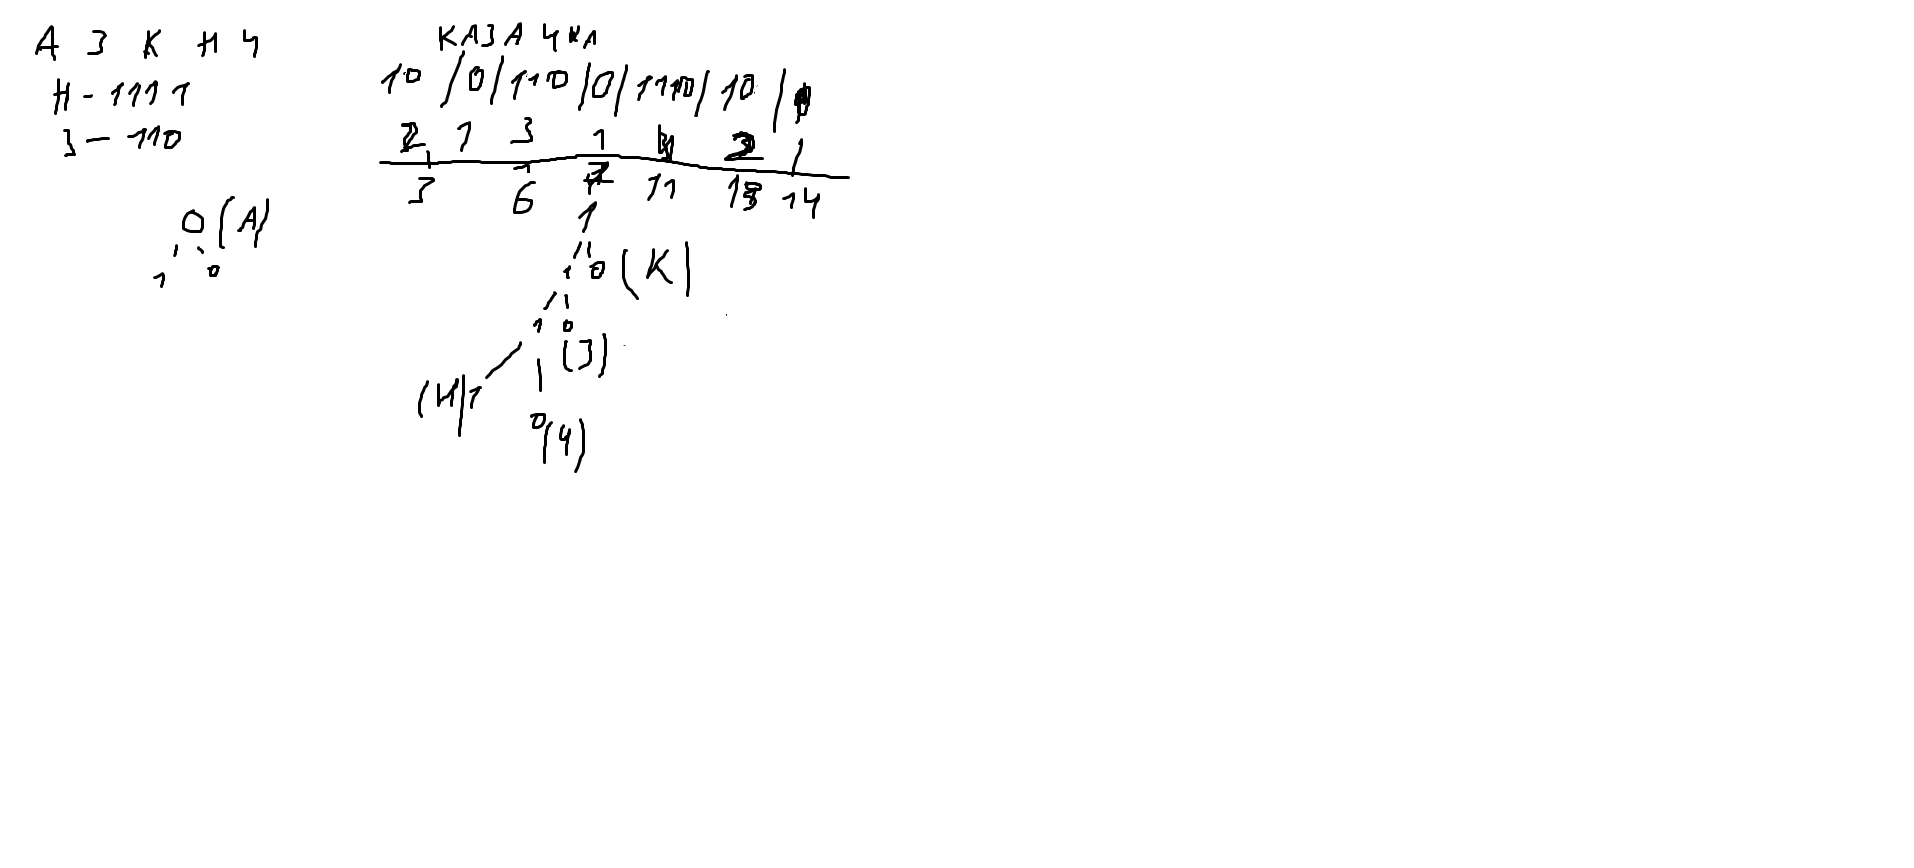 А З К Н Ч
Н - 1111
З - 110
КАЗАЧКА
10 / 0 / 110 / 0 / 1110 / 10 / 0
2 1 3 1 4 2 1
3 6 7 11 13 14
0 (А)
1 0
1
1 0 (К)
1 0
(З)
(Н) 1
0 (Ч)